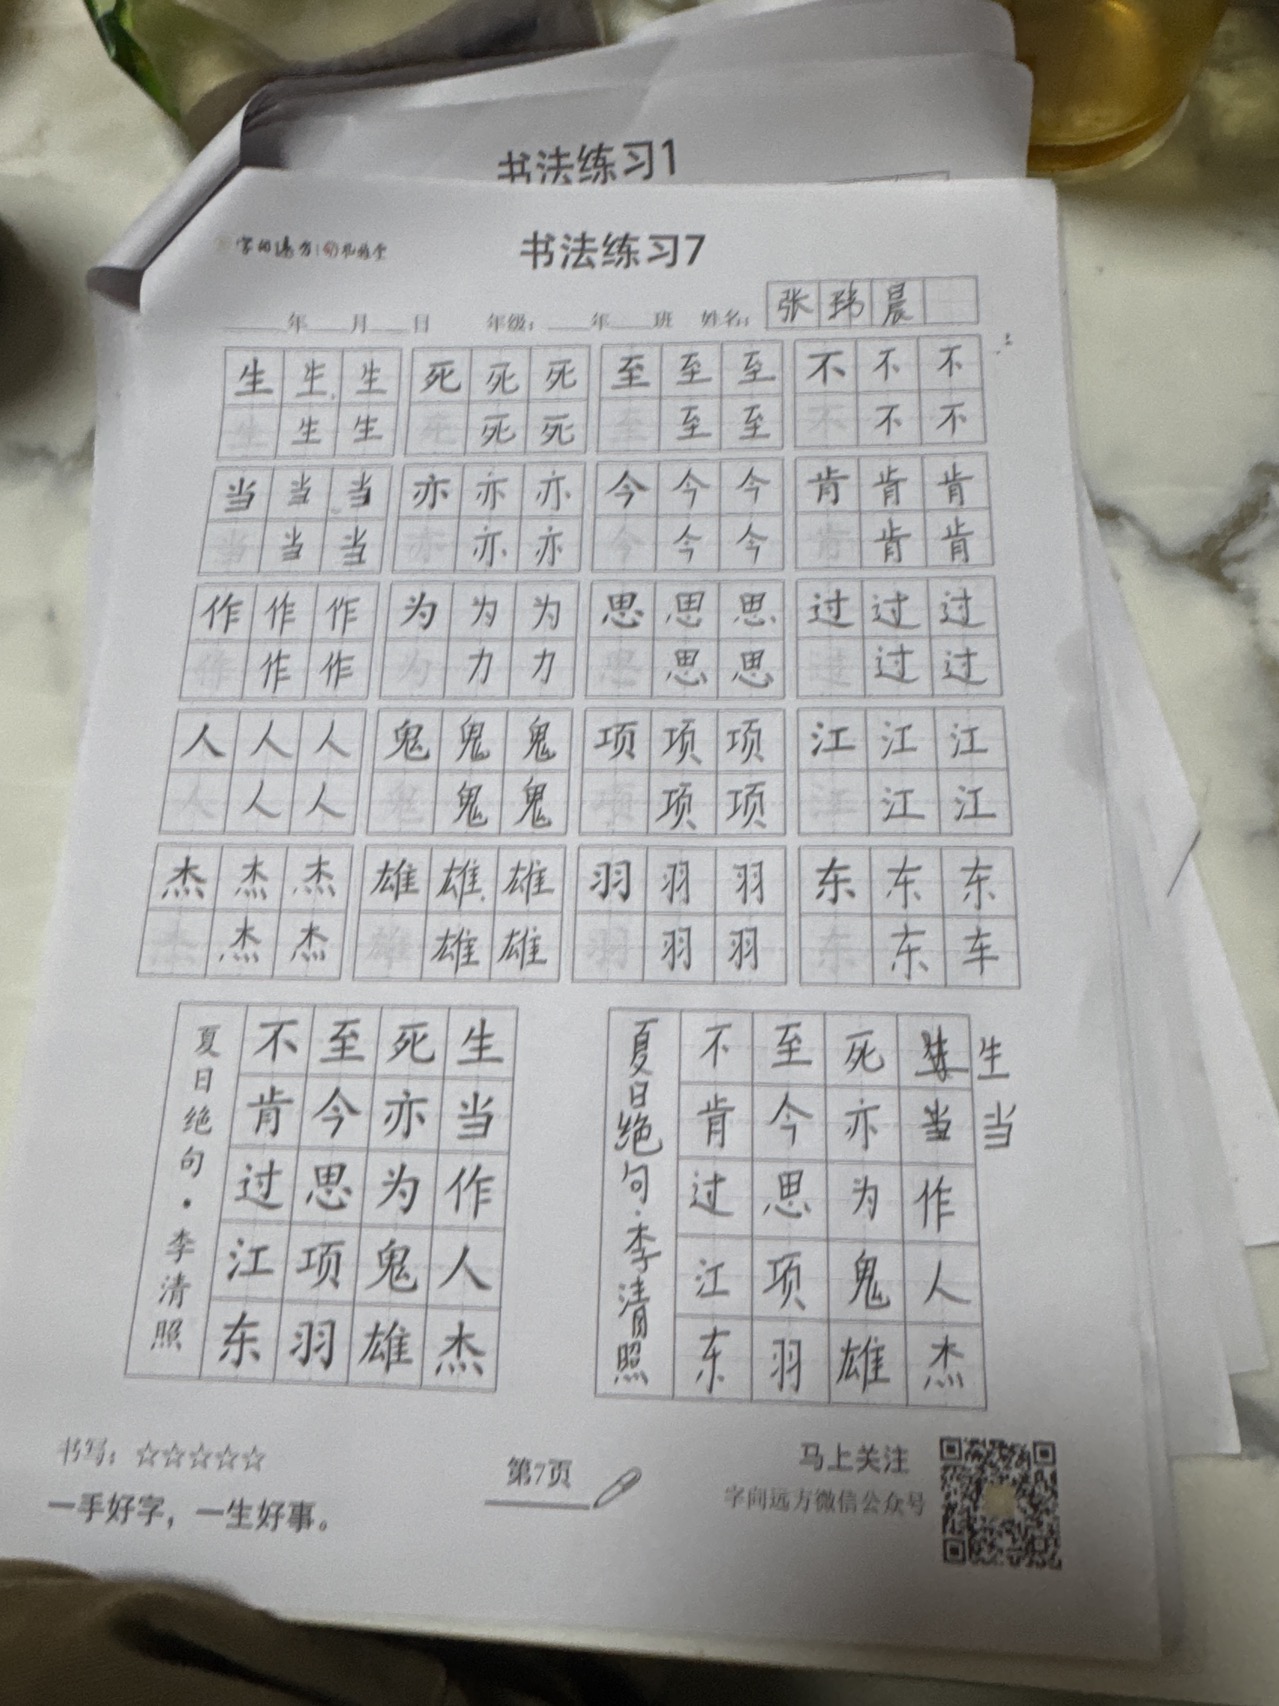 书法练习1
字间远方
书法练习7
年 月 日 年级： 年 班 姓名： 张玮晨
生生生 死死死 至至至 不不不
生生生 死死死 至至至 不不不
当当当 亦亦亦 今今今 肯肯肯
当当当 亦亦亦 今今今 肯肯肯
作作作 为为为 思思思 过过过
作作作 为力力 思思思 过过过
人人人 鬼鬼鬼 项项项 江江江
人人人 鬼鬼鬼 项项项 江江江
杰杰杰 雄雄雄 羽羽羽 东东东
杰杰杰 雄雄雄 羽羽羽 东东车
生当作人杰
死亦为鬼雄
至今思项羽
不肯过江东
夏日绝句·李清照
生当
生当作人杰
死亦为鬼雄
至今思项羽
不肯过江东
夏日绝句·李清照
书写：☆☆☆☆☆
一手好字，一生好事。
第7页
马上关注
字间远方微信公众号